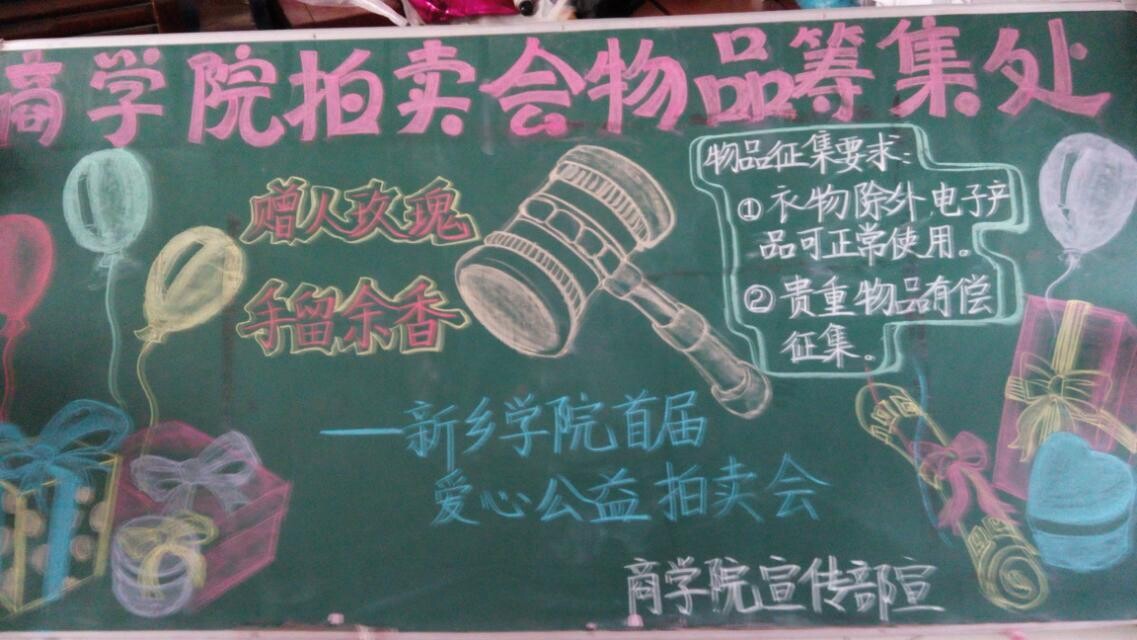 商学院拍卖会物品筹集处
赠人玫瑰
手留余香
物品征集要求:
①衣物除外,电子产
品可正常使用。
②贵重物品有偿
征集。
—新乡学院首届
爱心公益拍卖会
商学院宣传部宣